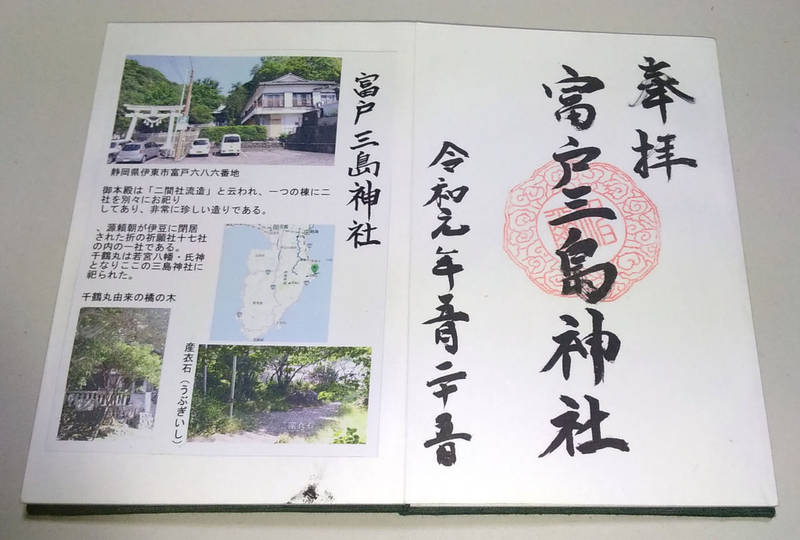 富戸三島神社
静岡県伊東市富戸六八六番地
御本殿は「二間社流造」と云われ、一つの棟に二
社を別々にお祀り
してあり、非常に珍しい造りである。
、源頼朝が伊豆に閉居
された折の祈願社十七社
の内の一社である。
千鶴丸は若宮八幡・氏神
となりここの三島神社に
祀られた。
千鶴丸由来の橘の木
産衣石(うぶぎいし)
奉拝
富戸三島神社
令和元年五月二十五日